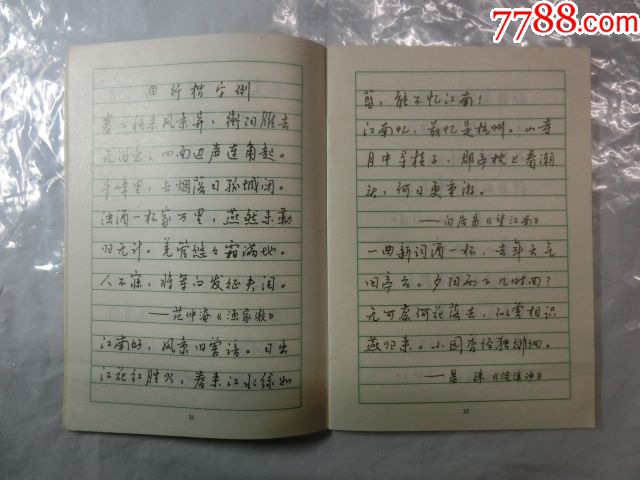 7788.com
④行楷字例
塞下秋来风景异，衡阳雁去
无留意。四面边声连角起。
千嶂里，长烟落日孤城闭。
浊酒一杯家万里，燕然未勒
归无计。羌管悠々霜满地。
人不寐，将军白发征夫泪。
——范仲淹《渔家傲》
江南好，风景旧曾谙。日出
江花红胜火，春来江水绿如
26
蓝，能不忆江南！
江南忆，最忆是杭州。山寺
月中寻桂子，郡亭枕上看潮
头，何日更重游。
——白居易《望江南》
一曲新词酒一杯，去年天气
旧亭台。夕阳西下几时回？
无可奈何花落去，似曾相识
燕归来。小园香径独徘徊。
——晏殊《浣溪沙》
27